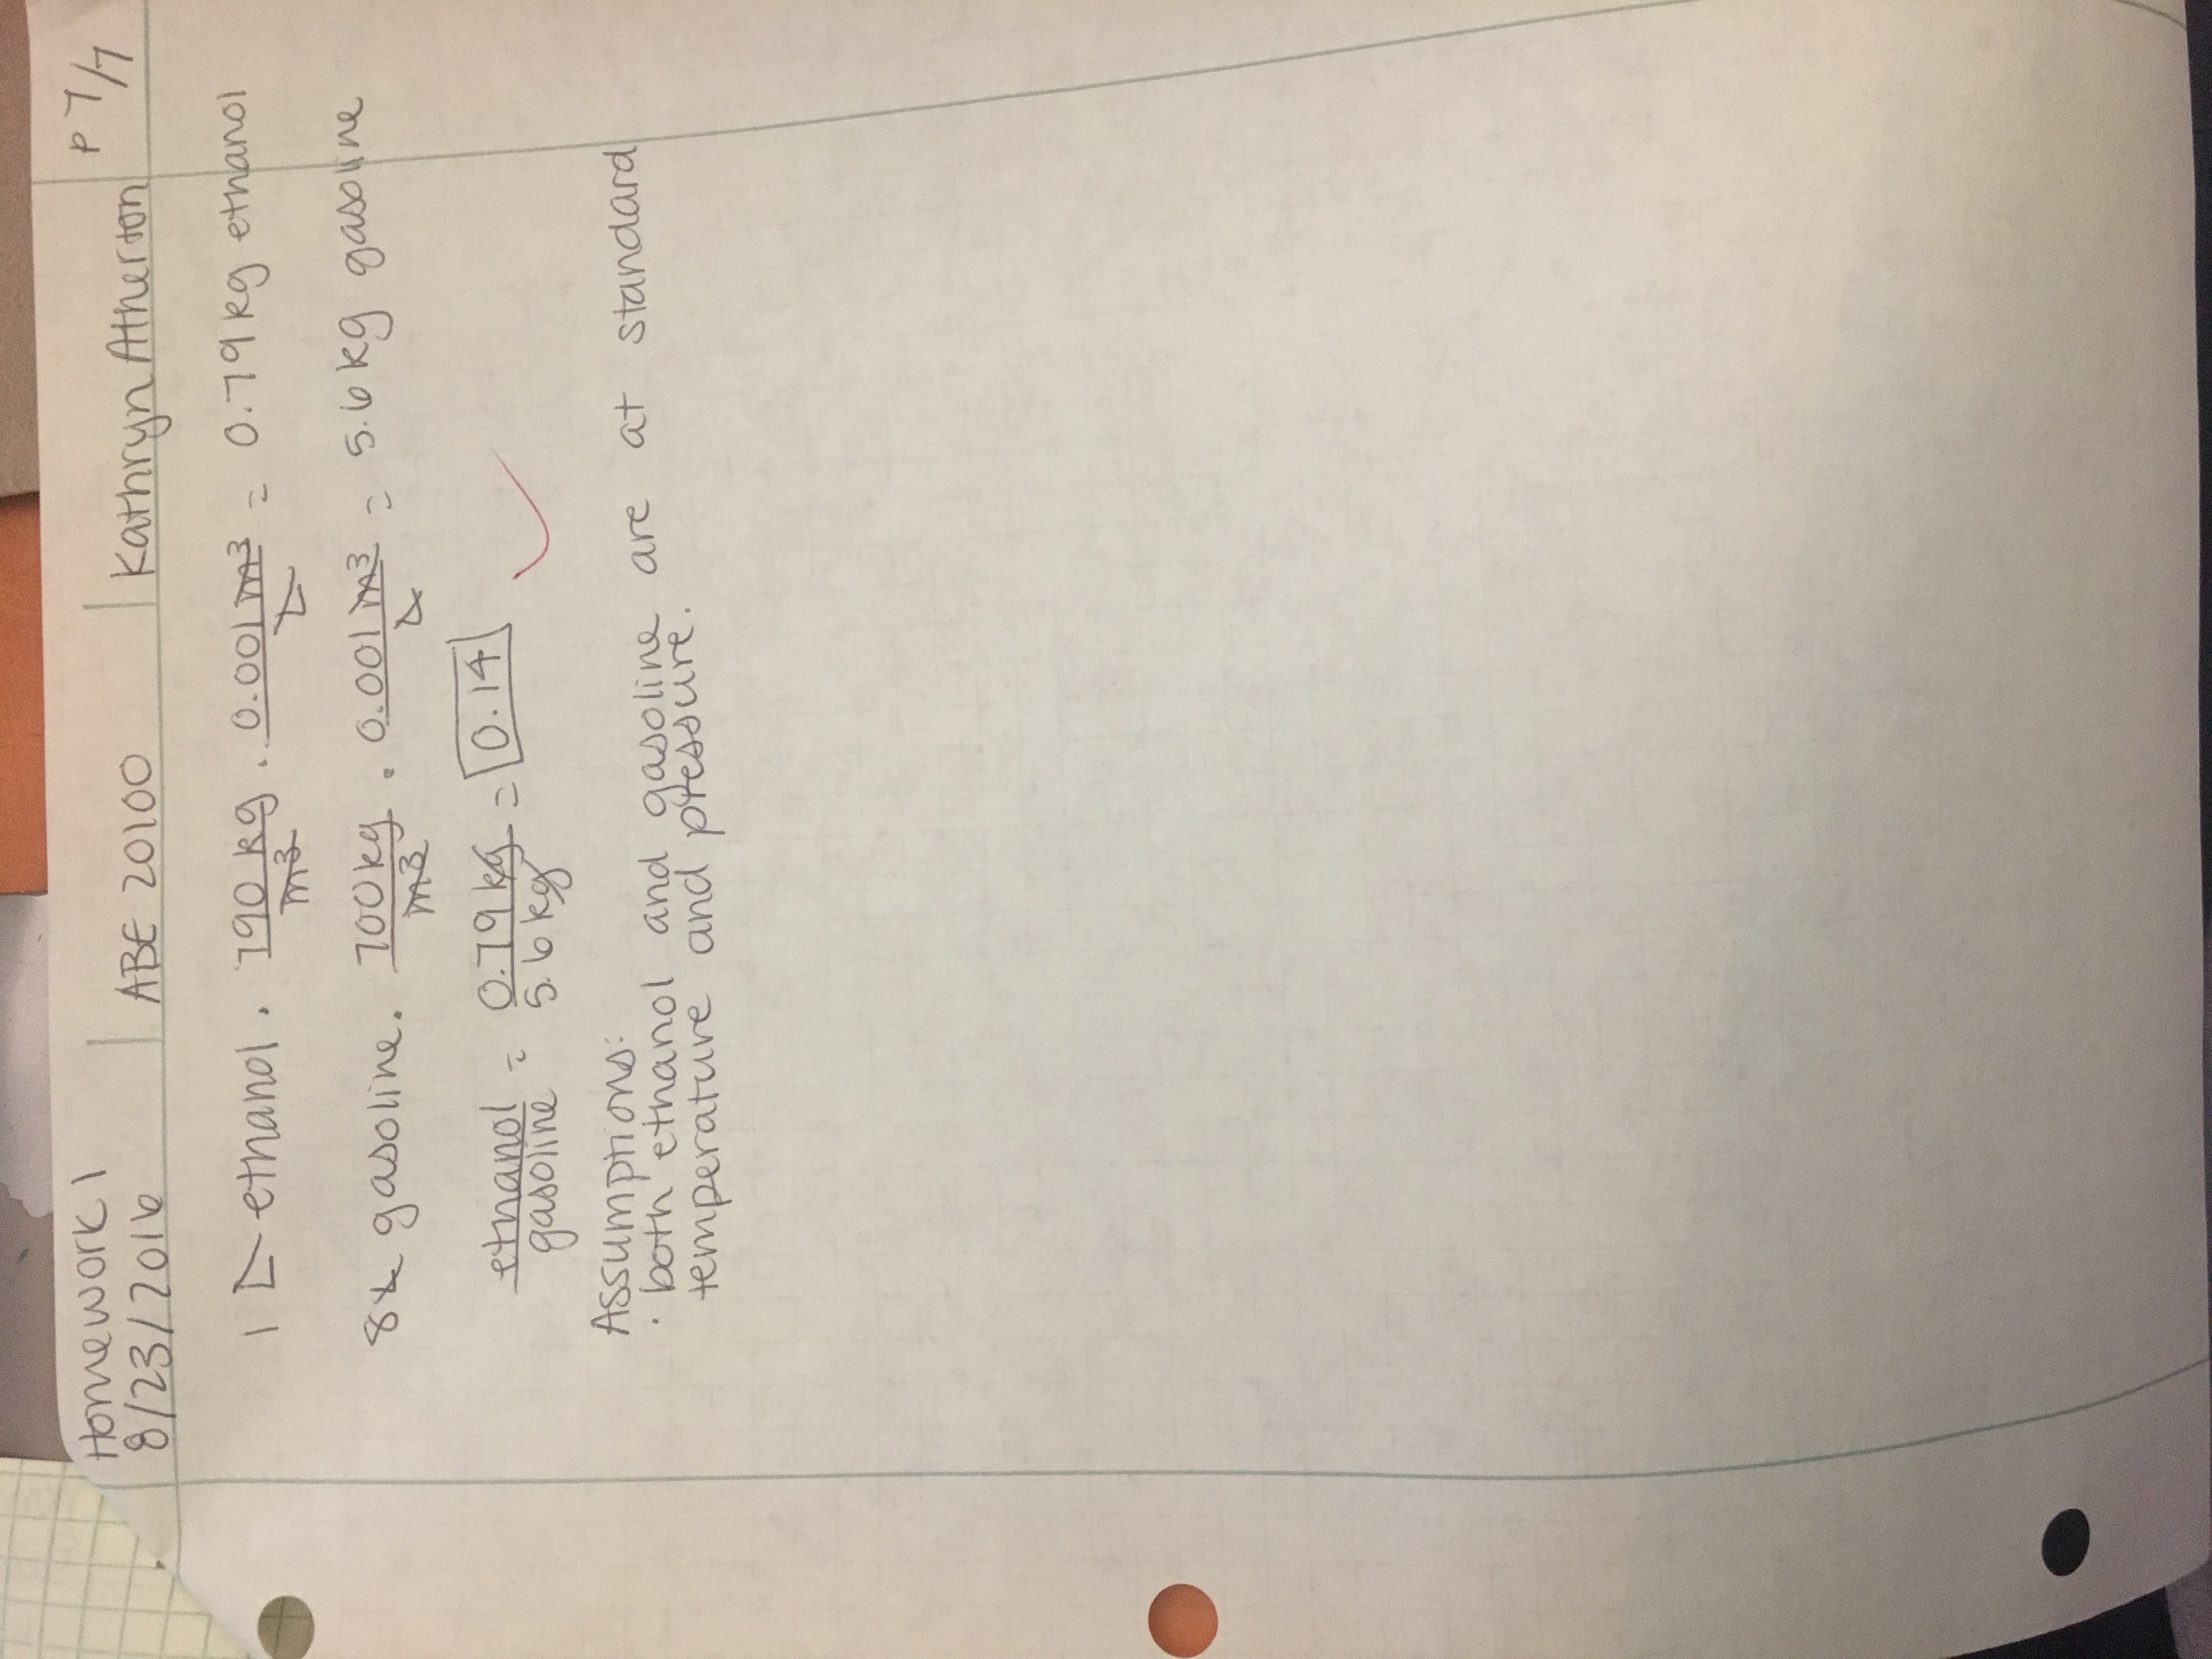 Homework 1
8/23/2016
ABE 20100
Kathryn Atherton
P 7/7
1 L ethanol . 790 kg/m³ . 0.001 m³/L = 0.79 kg ethanol
8L gasoline . 700 kg/m³ . 0.001 m³/L = 5.6 kg gasoline
ethanol/gasoline = 0.79 kg/5.6 kg = 0.14
Assumptions:
· both ethanol and gasoline are at standard
temperature and pressure.